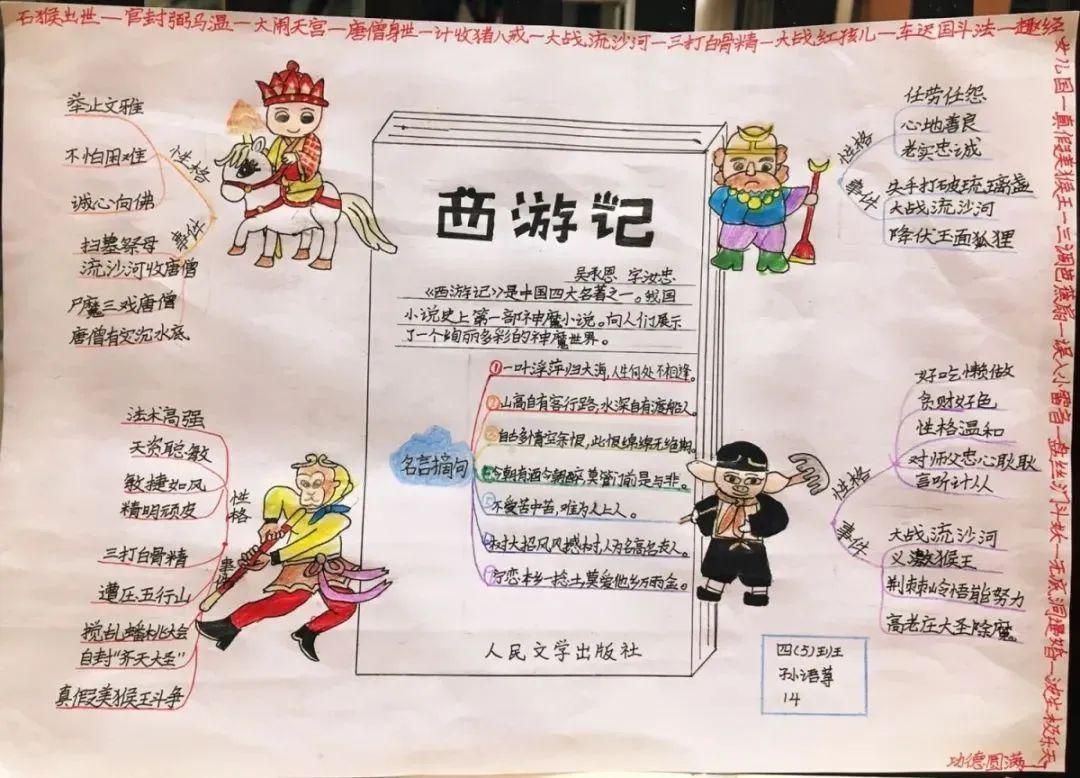 石猴出世—官封弼马温—大闹天宫—唐僧身世—计收猪八戒—大战流沙河—三打白骨精—大战红孩儿—车迟国斗法—趣经
女儿国—真假美猴王—三调芭蕉扇—误入小雷音—盘丝洞斗妖—无底洞逼婚—波生极乐天
功德圆满
举止文雅
不怕困难
诚心向佛
性格
事件
扫墓祭母
流沙河收唐僧
尸魔三戏唐僧
唐僧有灾沉水底
任劳任怨
心地善良
老实忠诚
性格
事件
失手打破琉璃盏
大战流沙河
降伏玉面狐狸
西游记
吴承恩 字汝忠
《西游记》是中国四大名著之一。我国
小说史上第一部神魔小说。向人们展示
了一个绚丽多彩的神魔世界。
名言摘句
①一叶浮萍归大海,人生何处不相逢。
②山高自有客行路,水深自有渡船人。
③自古多情空余恨,此恨绵绵无绝期。
④今朝有酒今朝醉,莫管门前是与非。
⑤不受苦中苦,难为人上人。
⑥树大招风风撼树,人为名高名丧人。
⑦宁恋本乡一捻土,莫爱他乡万两金。
人民文学出版社
法术高强
天资聪敏
敏捷如风
精明顽皮
性格
事件
三打白骨精
遭压五行山
搅乱蟠桃大会
自封“齐天大圣”
真假美猴王斗争
好吃懒做
贪财好色
性格温和
对师父忠心耿耿
言听计从
性格
事件
大战流沙河
义激猴王
荆棘岭悟能努力
高老庄大圣除魔
四(5)班
孙语尊
14